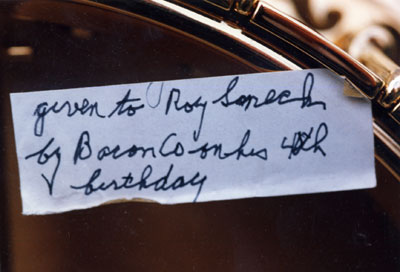 given to Roy Smeck
by Bacon Co on his
birthday